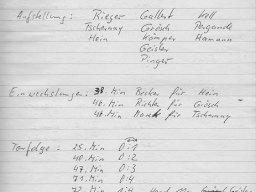 Aufstellung: Rieger Gallert Kell
Tschenny Grösch Pergande
Hein Kämper Hamann
Geisler
Pinger
Einwechslungen: 38. Min Becker für Hein
46. Min Richter für Grösch
46. Min für Tschenny
Torfolge: 25. Min 0:1
40. Min 0:2
47. Min 0:3
71. Min 0:4
72. Min